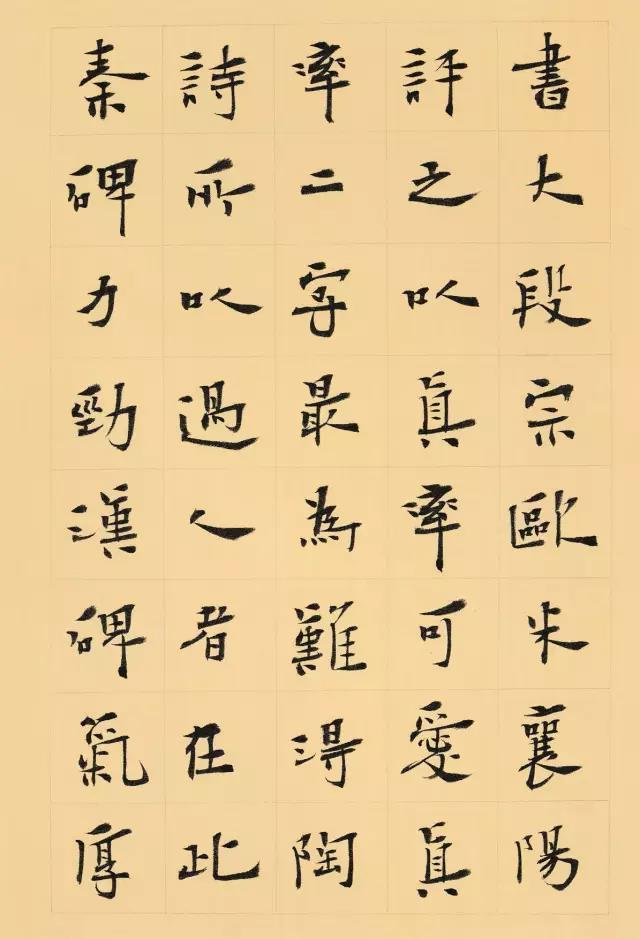 書大段宗歐米襄陽
評之以眞率可愛眞
率二字最為難得陶
詩所以過人者在此
秦碑力勁漢碑氣厚